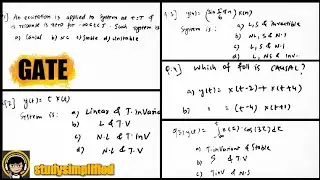 An excitation is applied to system at t=T &
response is zero for -∞<t<T. Such system is
a) Causal b) NC c) Stable d) Unstable
GATE
Q.2] y(t) = t x(t)
System is : a) Linear & T. InVaria
b) L & T.V
c) N.L & T.InV
d) N.L & T.V
studysimplified
y(n) = (sin 5πn/6) x(n)
System is : a) L, S & Invertible
b) NL, S & N.I
c) L, S & N.I
Which of foll is CAUSAL?
a) y(t) = x(t-2) + x(t+4)
b) " = (t-4) x(t+1)
a) T.invariant & Stable
b) S & T.V
c) T.inV & N.S